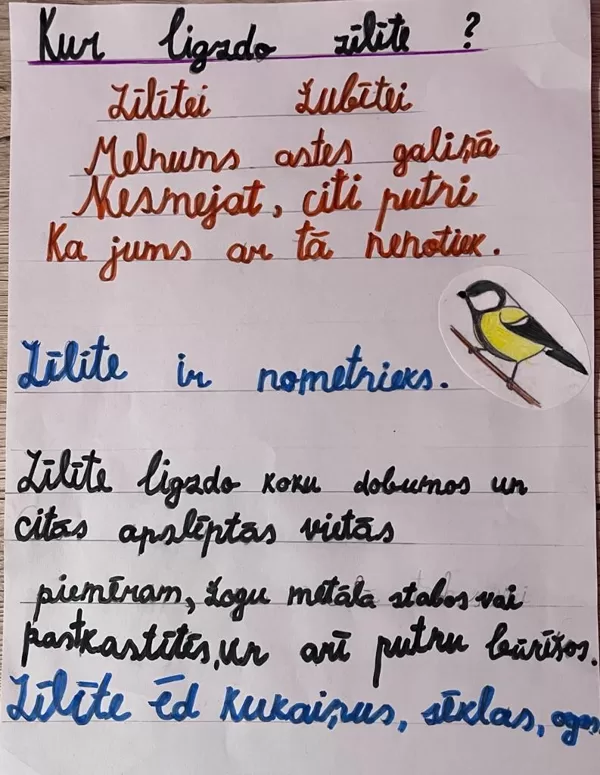 Kur ligzdo zīlīte ?
Zīlītei žubītei
Melnums astes galiņā
Nesmejat, citi putni
Ka jums ar tā nenotiek.
Zīlīte ir nometnieks.
Zīlīte ligzdo koku dobumos un
citās apslēptās vietās
piemēram, žogu metāla stabos vai
pastkastītēs, un arī putnu būrīšos.
Zīlīte ēd kukaiņus, sēklas, ogas.